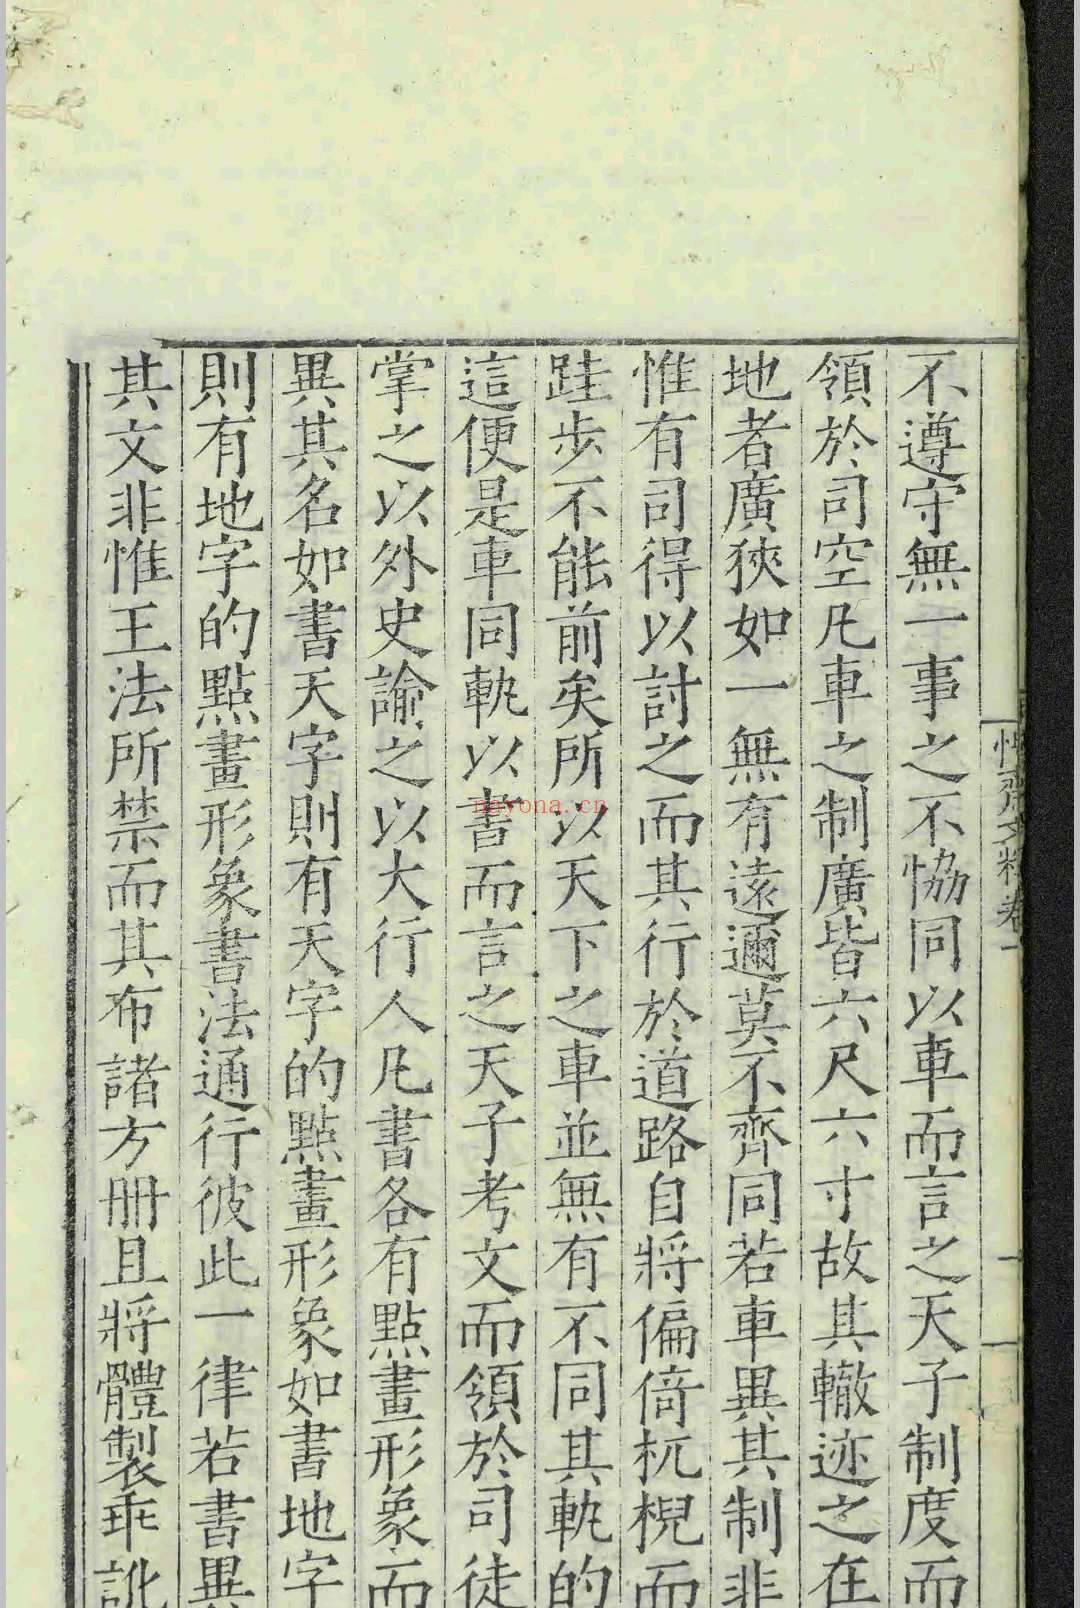 不遵守無一事之不恊同以車而言之天子制度而
領於司空凡車之制廣皆六尺六寸故其轍迹之在
地者廣狹如一無有遠邇莫不齊同若車異其制非
惟有司得以討之而其行於道路自將偏倚杌棿而
跬步不能前矣所以天下之車並無有不同其軌的
這便是車同軌以書而言之天子考文而領於司徒
掌之以外史諭之以大行人凡書各有點畫形象而
異其名如書天字則有天字的點畫形象如書地字
則有地字的點畫形象書法通行彼此一律若書異
其文非惟王法所禁而其布諸方冊且將體製乖訛
齊文粹卷一
nayona.cn